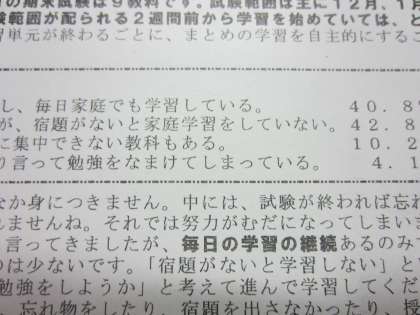 の期末試験は９教科です。試験範囲は主に１２月、１月
験範囲が配られる２週間前から学習を始めていては、
習単元が終わるごとに、まとめの学習を自主的にするこ
し、毎日家庭でも学習している。 ４０．８
が、宿題がないと家庭学習をしていない。 ４２．８
に集中できない教科もある。 １０．２
り言って勉強をなまけてしまっている。 ４．１
なか身につきません。中には、試験が終われば忘れ
れませんね。それでは努力がむだになってしまいま
言ってきましたが、毎日の学習の継続あるのみ
のは少ないです。「宿題がないと学習しない」と
勉強をしようか」と考えて進んで学習してくだ
、忘れ物をしたり、宿題を出さなかったり、授